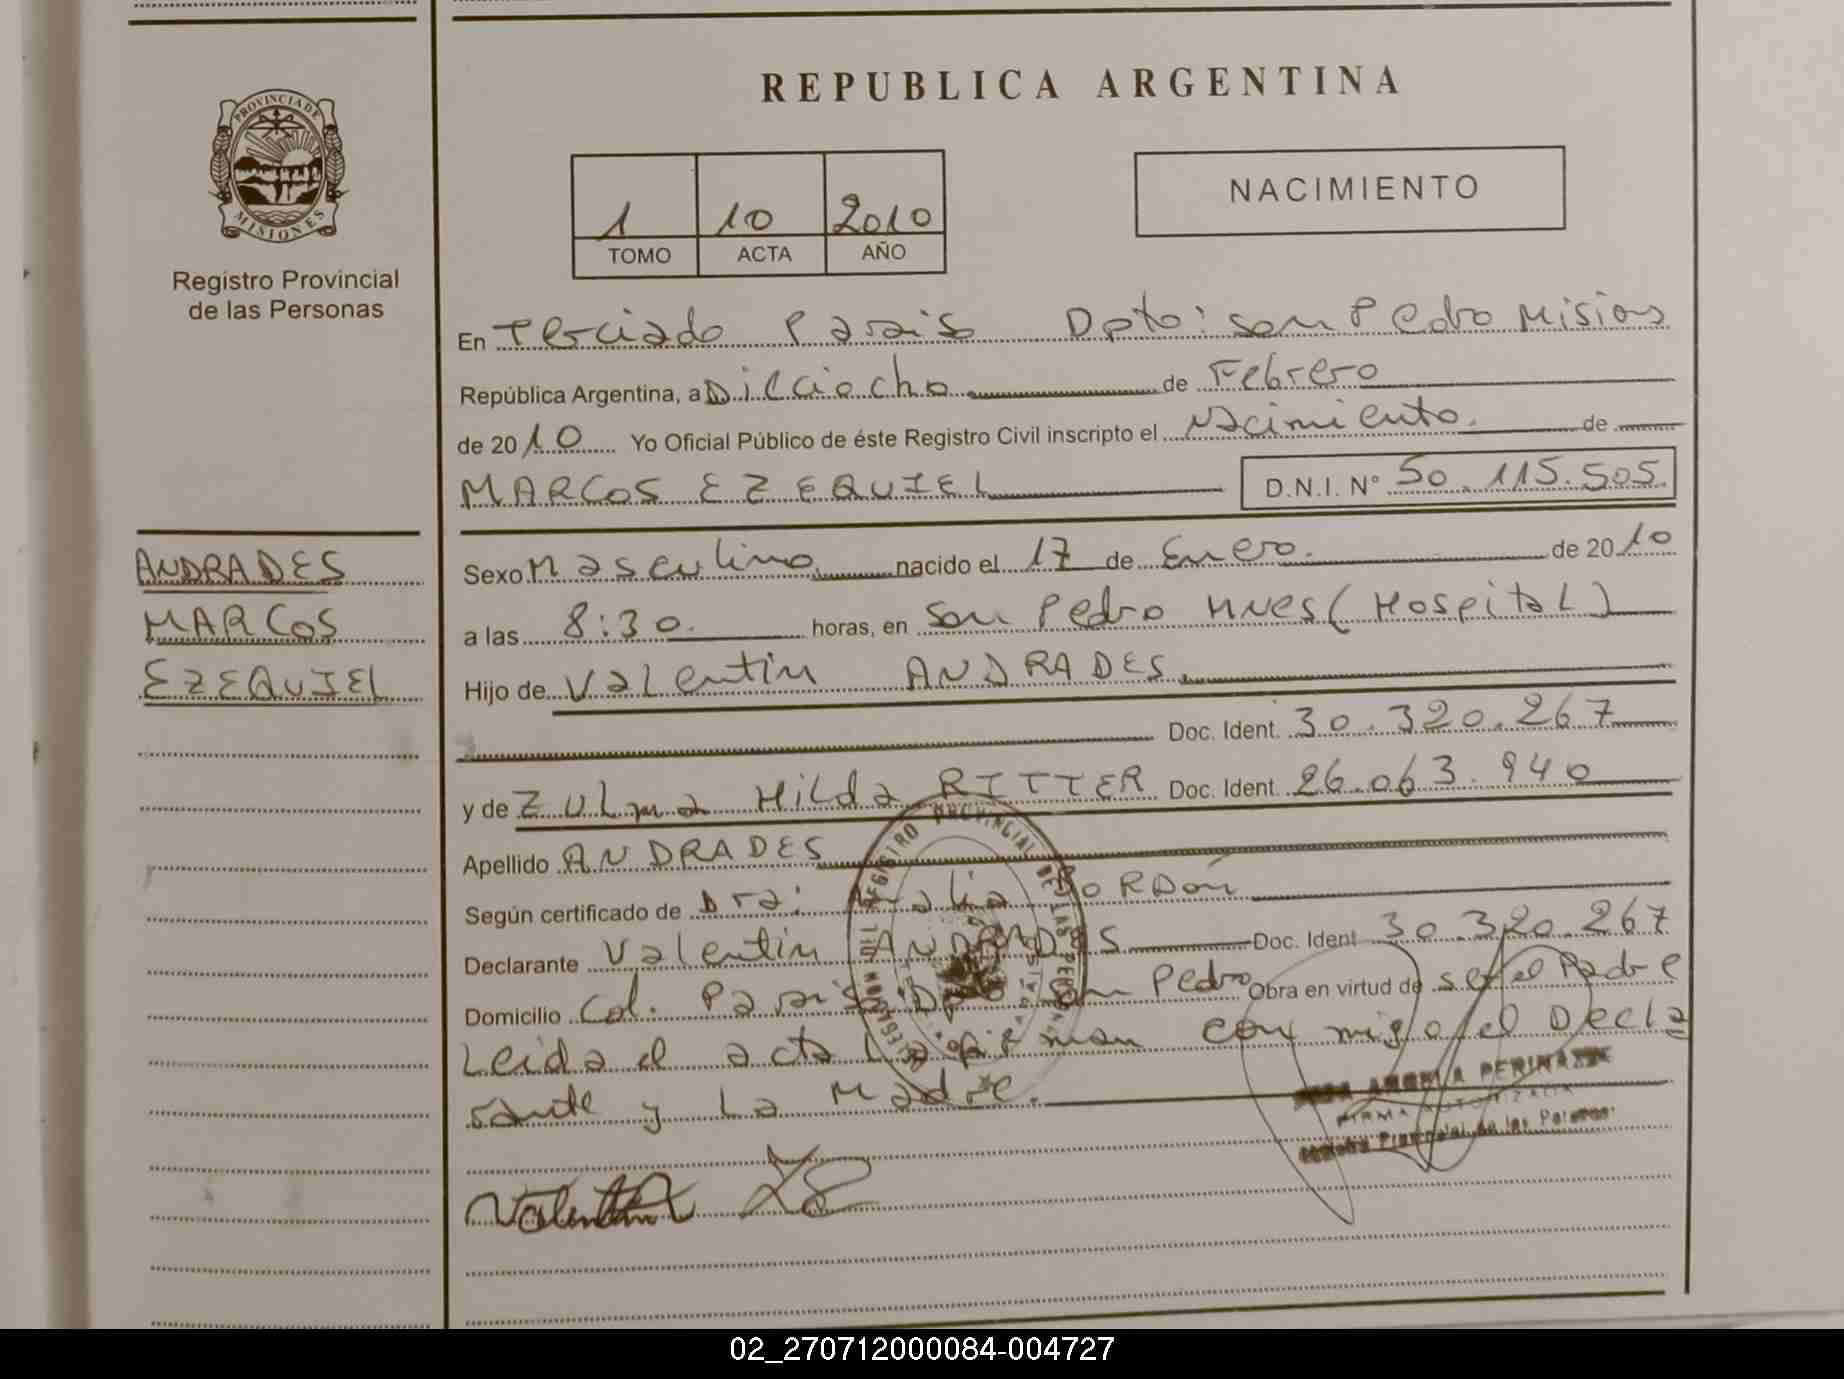 REPUBLICA ARGENTINA
PROVINCIA DE
MISIONES
Registro Provincial
de las Personas
1 10 2010
TOMO ACTA AÑO
NACIMIENTO
En Terciado Paraiso Dpto: San Pedro Misiones
República Argentina, a Dieciocho de Febrero
de 2010 Yo Oficial Público de éste Registro Civil inscripto el Nacimiento. de
MARCOS EZEQUIEL D.N.I. N° 50.115.505.
ANDRADES
MARCOS
EZEQUIEL
Sexo Masculino nacido el 17 de Enero. de 2010
a las 8:30. horas, en San Pedro MNES (Hospital)
Hijo de Valentin ANDRADES
Doc. Ident. 30.320.267
y de Zulma Hilda RITTER Doc. Ident. 26.063.940
Apellido ANDRADES
Según certificado de Dra: BORDón
Declarante Valentin ANDRADES Doc. Ident 30.320.267
Domicilio Col. Paraiso Dpto San Pedro Obra en virtud de ser el Padre
Leida el acta La firman con migo el Decla
rante y La Madre.
PERINA
FIRMA AUTORIZADA
Registro Provincial de las Personas
Valentin
02_270712000084-004727